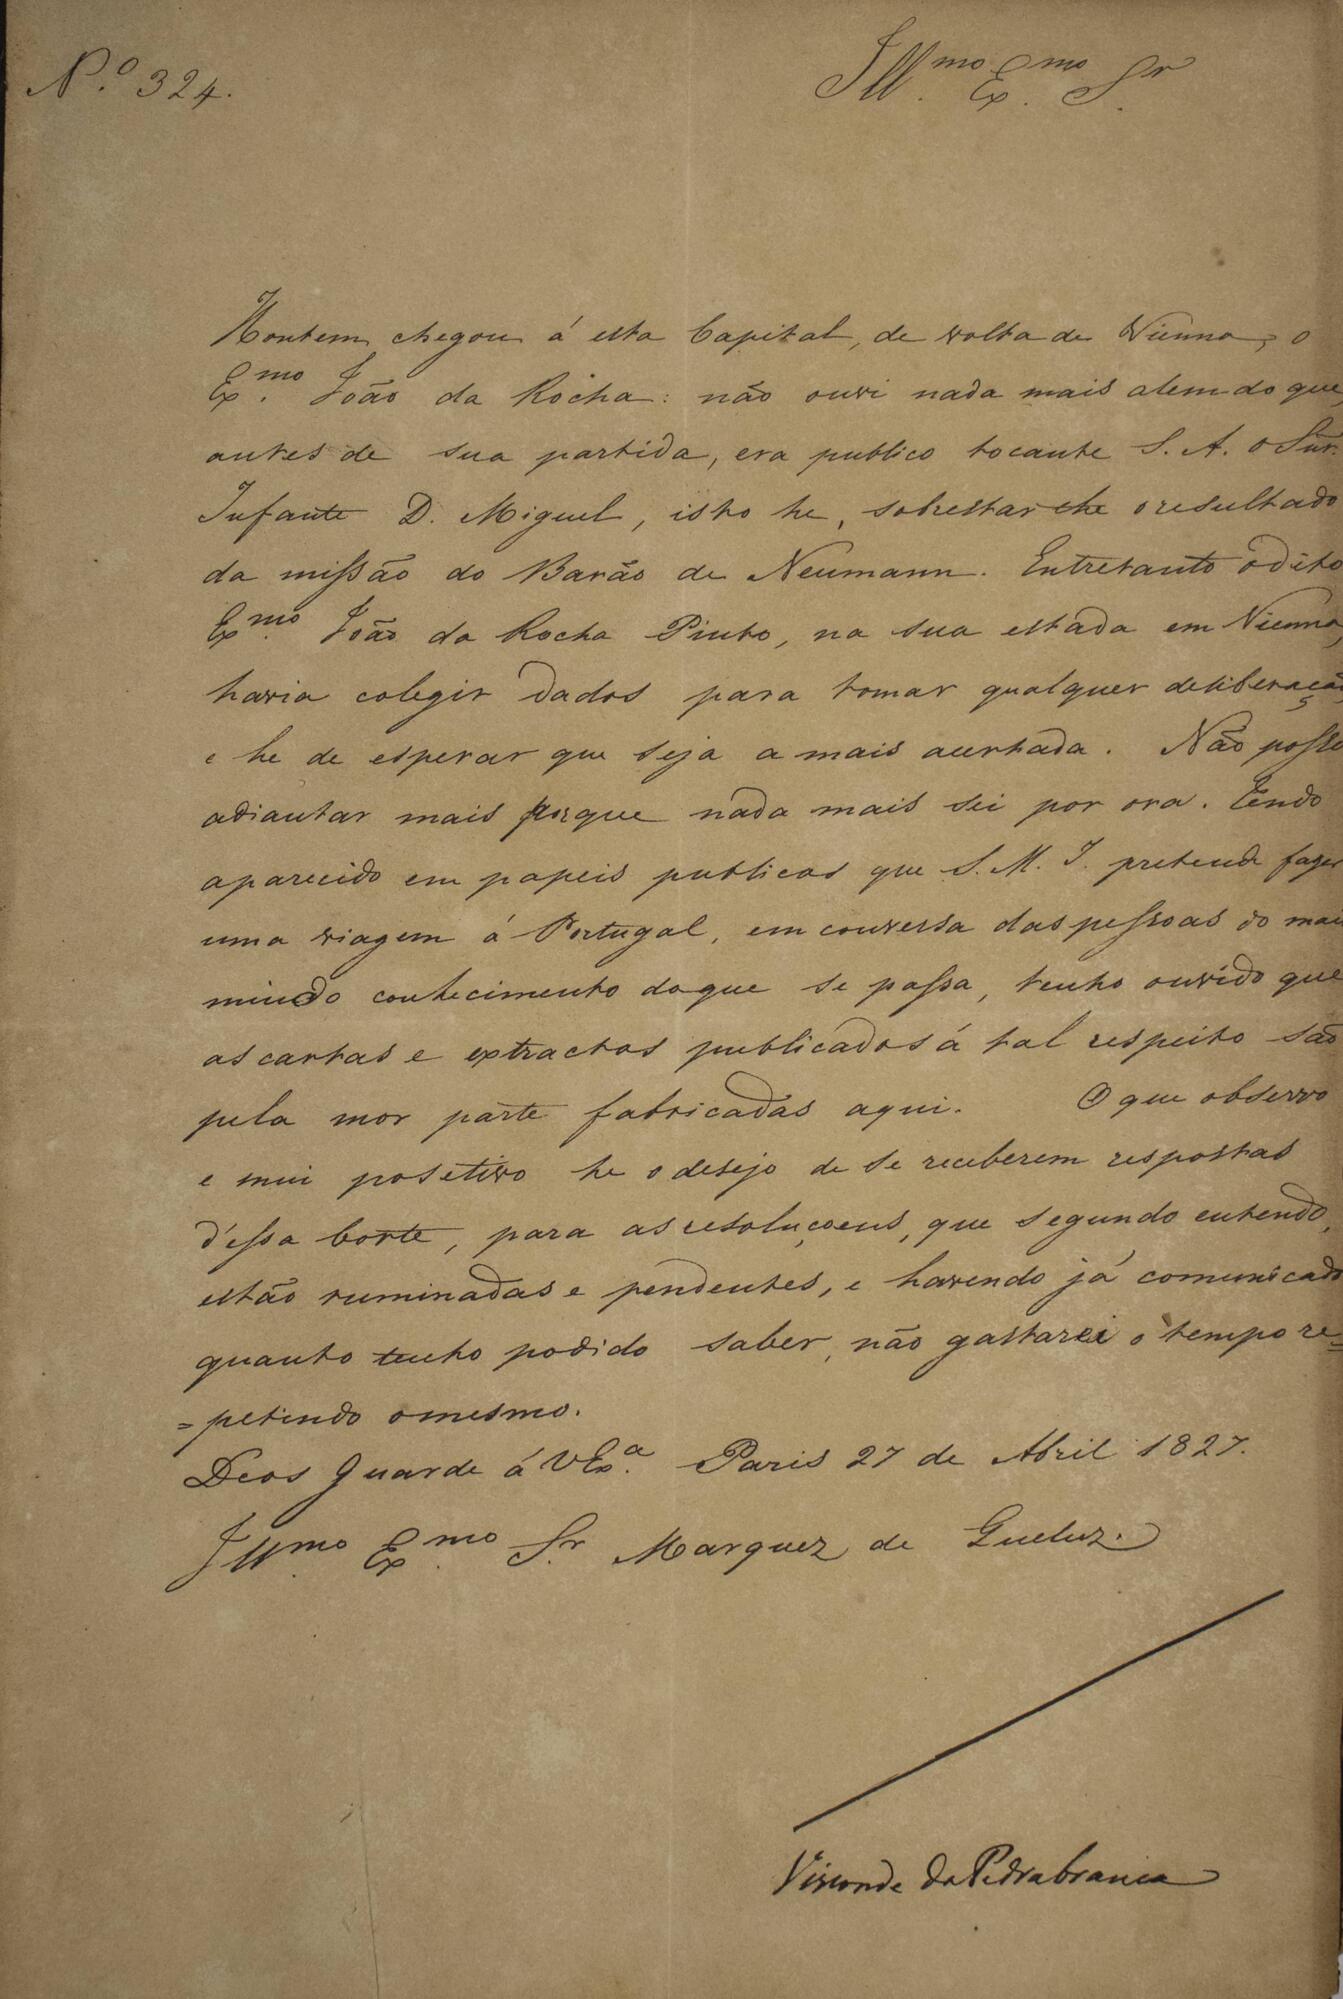 N.º 324.
Ill.mo Ex.mo Sr.
Hontem chegou á esta Capital, de volta de Vienna, o
Ex.mo João da Rocha: não ouvi nada mais alem do que,
antes de sua partida, era publico tocante S. A. o Snr.
Infante D. Miguel, isto he, sobrestar the o resultado
da missão do Barão de Neumann. Entretanto o dito
Ex.mo João da Rocha Pinto, na sua estada em Vienna,
havia colegir dados para tomar qualquer deliberação,
e he de esperar que seja a mais acertada. Não posso
adiantar mais porque nada mais sei por ora. Tendo
aparecido em papeis publicos que S. M. I. pretende fazer
uma viagem á Portugal, em conversa das pessoas do mais
miudo conhecimento do que se passa, tenho ouvido que
as cartas e extractos publicados á tal respeito são
pela mor parte fabricadas aqui. O que observo
e mui posetivo he o desejo de se receberem respostas
d'essa Corte, para as resoluçoens, que segundo entendo,
estão ruminadas e pendentes, e havendo já comunicado
quanto tenho podido saber, não gastarei o tempo re=
=petindo o mesmo.
Deos Guarde á VEx.a Paris 27 de Abril 1827.
Ill.mo Ex.mo Sr. Marquez de Queluz.
Visconde da Pedrabranca